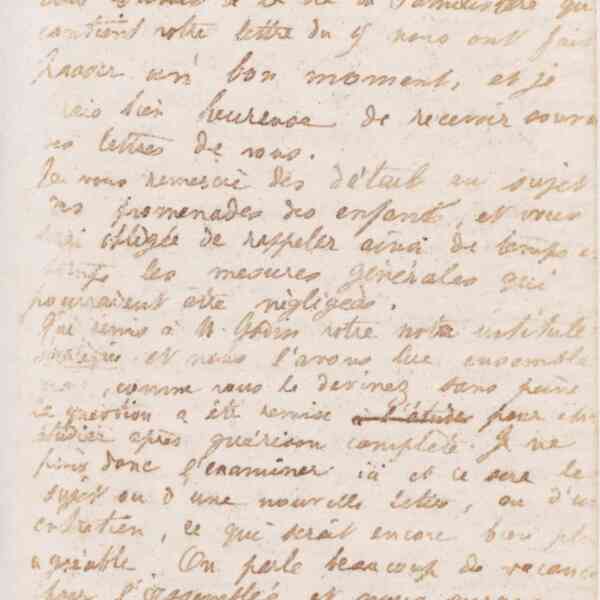 contient votre lettre du 9 nous ont fait
passer un bon moment, et je
bien heureuse de recevoir
lettres de vous.
Je vous remercie des détails au sujet
des promenades des enfants, et vous
obligée de rappeler ainsi de temps
les mesures générales qui
pourraient être négligées.
remis à M Godin votre note intitulée
et nous l'avons lue ensemble
, comme vous le devinez sans peine
la question a été remise à l'étude pour être
étudiée après guérison complète. Je ne
puis donc l'examiner ici et ce sera le
sujet ou d'une nouvelle lettre, ou d'un
entretien, ce qui serait encore bien plus
agréable. On parle beaucoup de vacances
pour l'Assemblée et nous